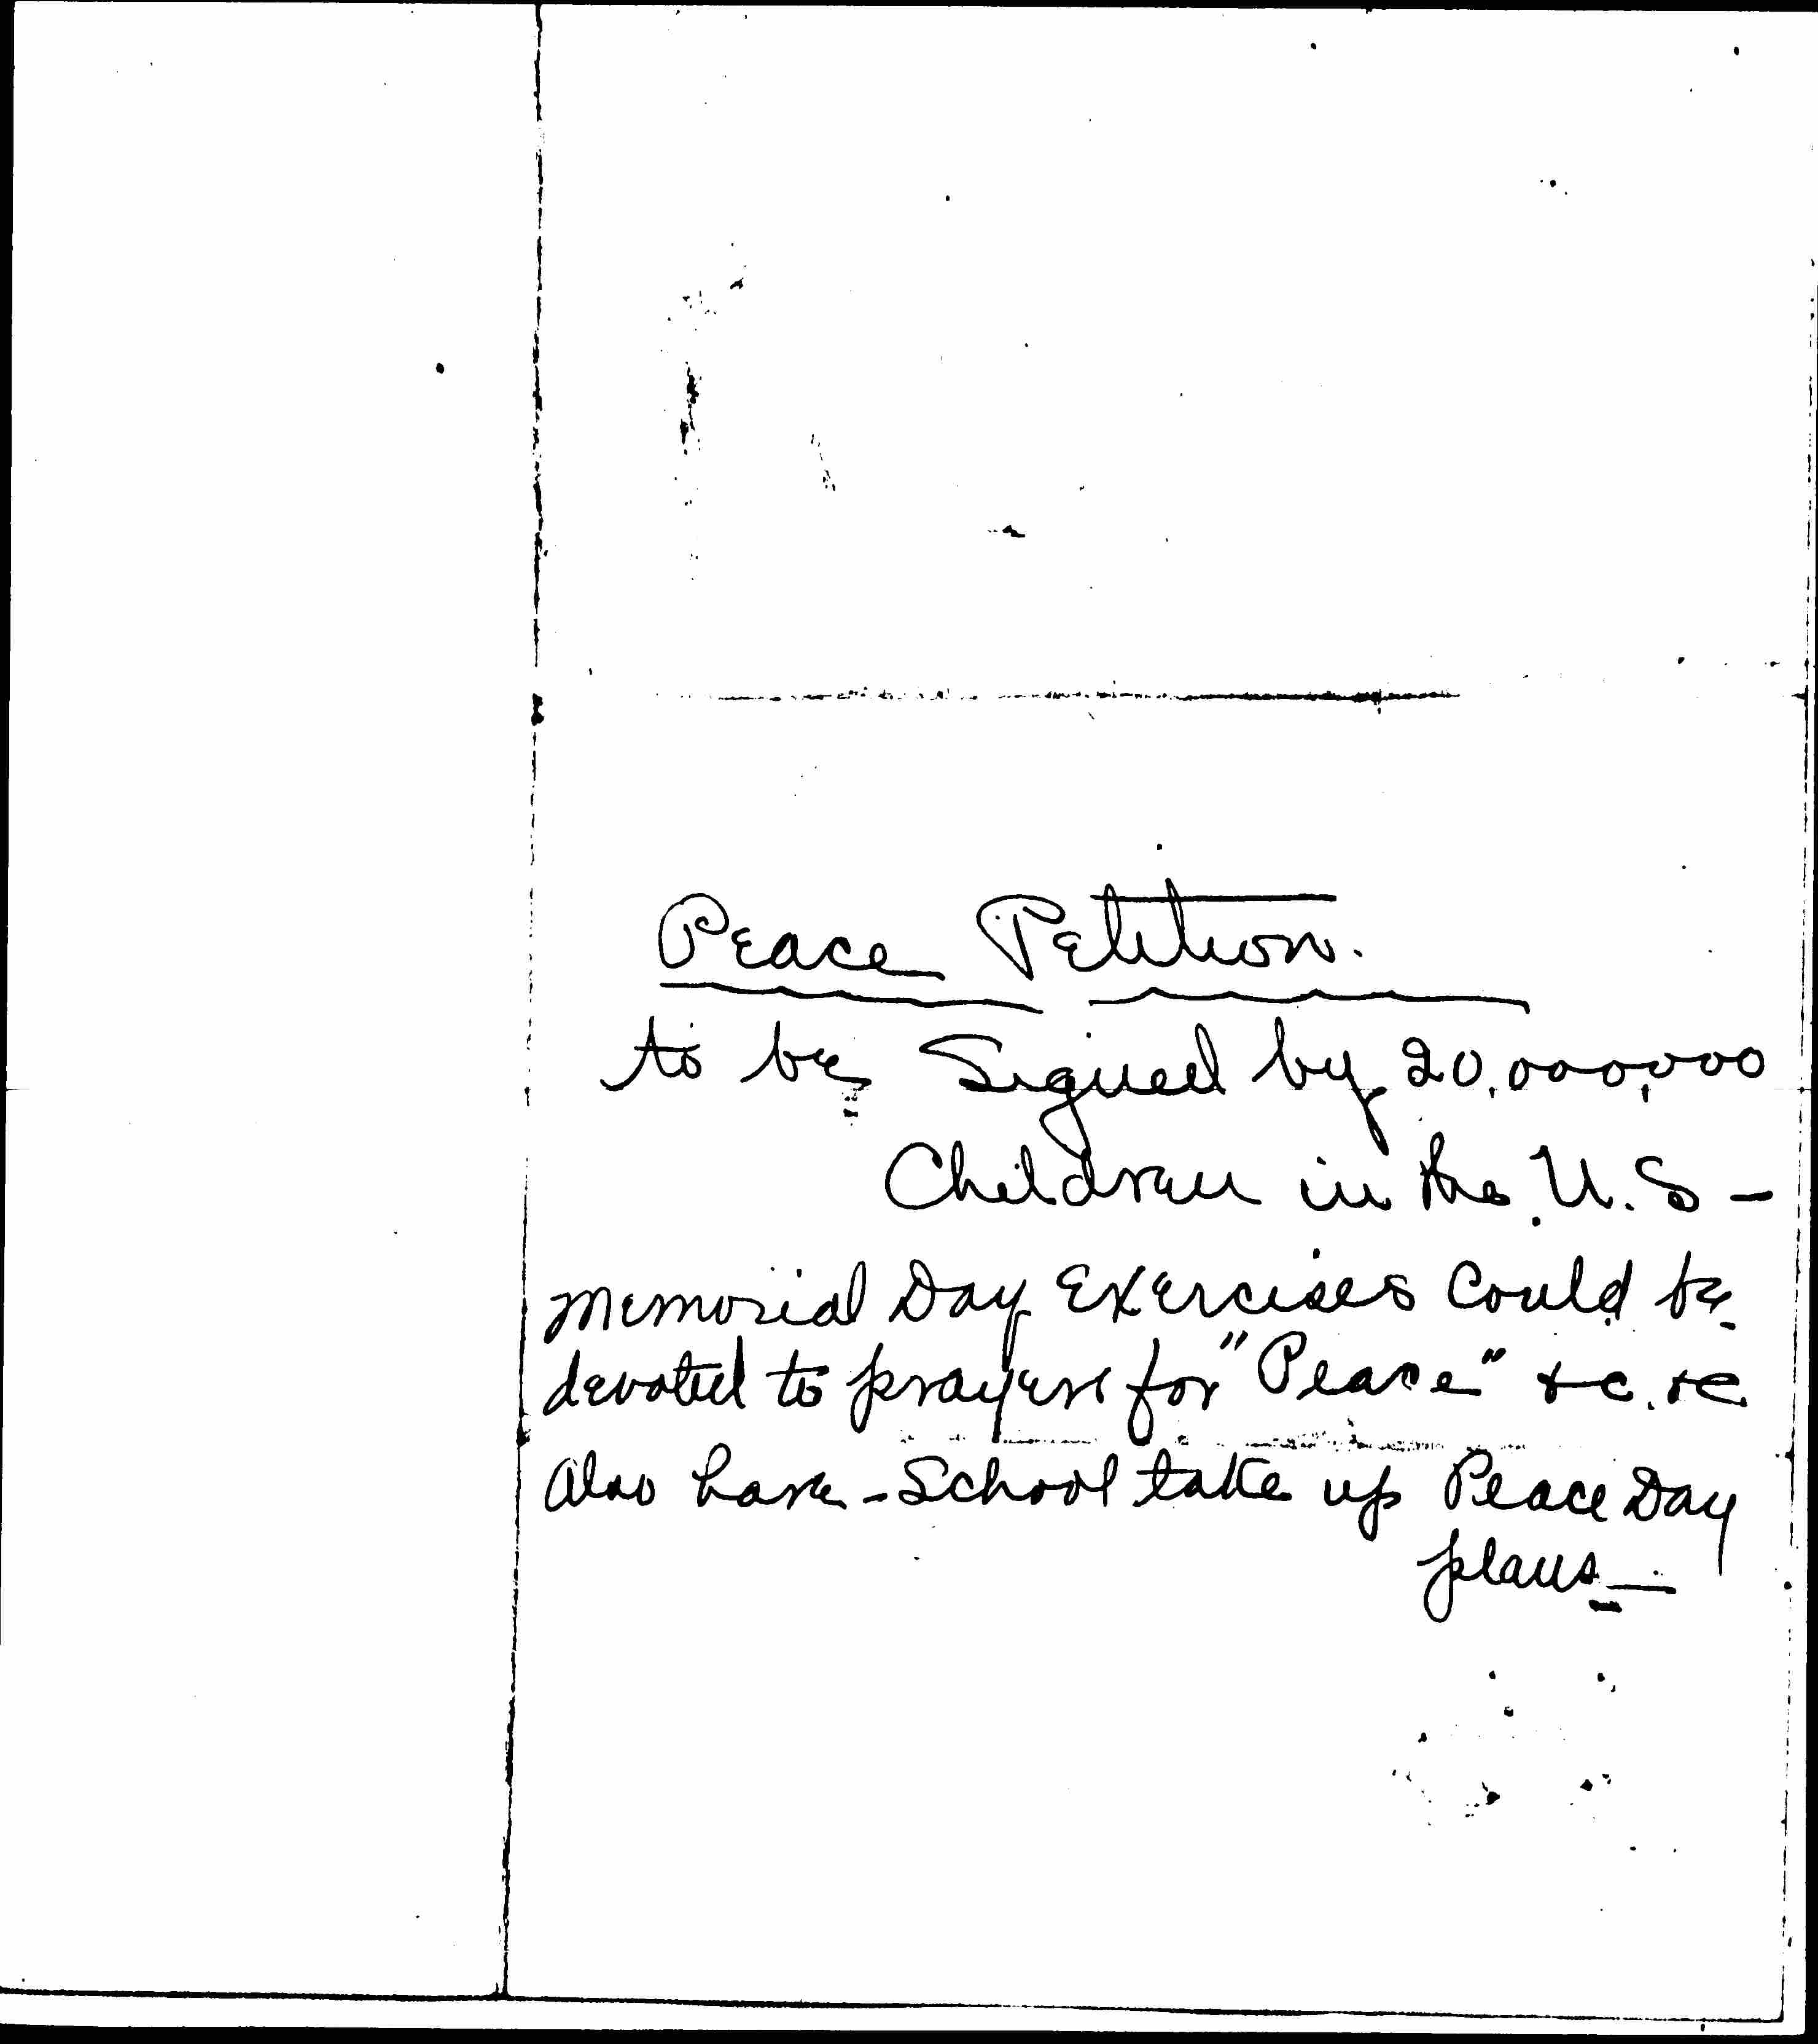 Peace Petition.
to be Signed by 20,000,000
Children in the U.S -
Memorial Day Exercises Could be
devoted to prayers for "Peace" &c. &c
Also have - School take up Peace Day
plans -